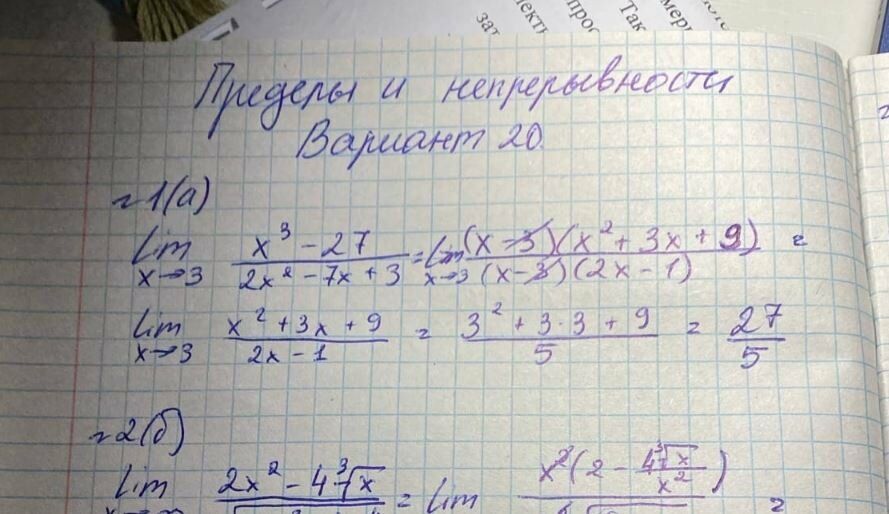 зат
лекть
прос
Так
мери
Пределы и непрерывности
Вариант 20.
№1(а)
lim x→3 (x³ - 27)/(2x² - 7x + 3) = lim x→3 ((x - 3)(x² + 3x + 9))/((x - 3)(2x - 1)) =
lim x→3 (x² + 3x + 9)/(2x - 1) = (3² + 3·3 + 9)/5 = 27/5
№2(б)
lim 2x² - 4∛x = lim x²(2 - 4∛x/x²) =